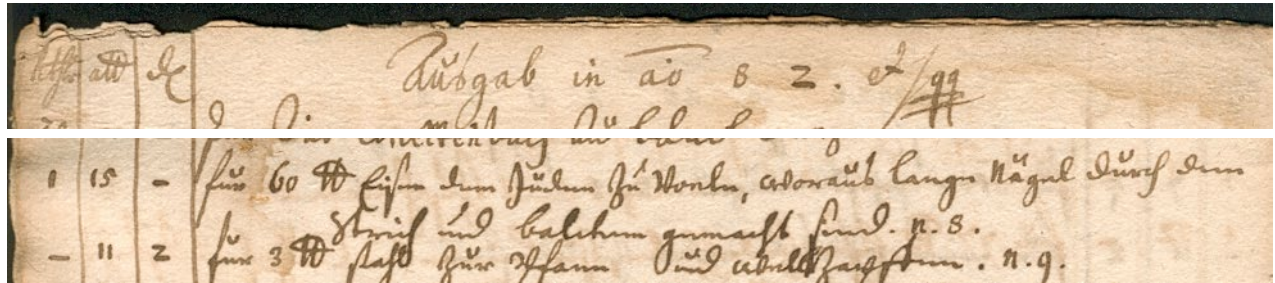 rthlr alb d Ausgab in ao 8 2. et
1 15 - für 60 lb Eisen dem Juden zu Voerln, woraus lange Nägel durch den
Strich und balcken gemacht sind. N. 8.
- 11 2 für 3 lb stahl zur Pfann und wellZapffen. N. 9.